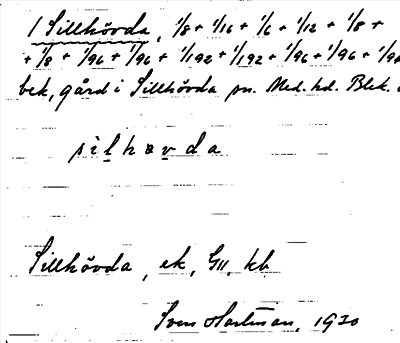 1 Sillhövda, 1/8 + 1/16 + 1/6 + 1/12 + 1/8 +
+ 1/8 + 1/96 + 1/96 + 1/192 + 1/192 + 1/96 + 1/96 +
bek, gård i Sillhövda sn. Med. hd. Blek.
silhøvda
Sillhövda, ek, GU, kb
Sven Hartman, 1930